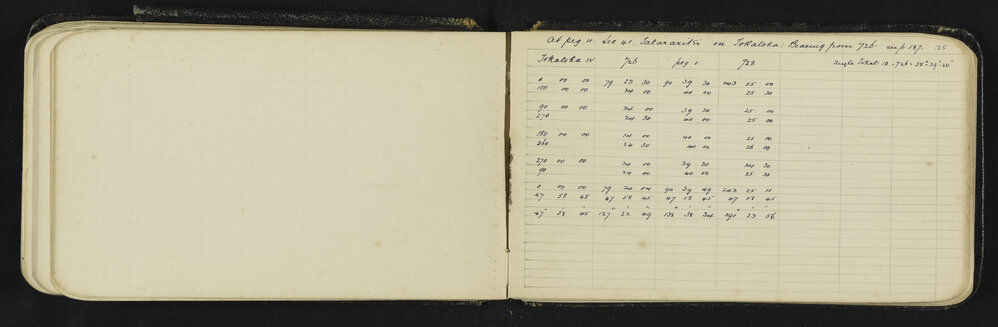 At peg 11. Sec 41. Tatarariki on Tokatoka. Bearing from 72b. on p. 187. 125
Tokatoka IV 72b peg 1. 72B Angle Tokat. 1A - 72b = 58° 39' 20"
0 00 00 79 23 30 90 39 30 243 25 00
180 00 00 24 00 40 00 25 30
90 00 00 24 00 39 30 25 00
270 24 30 40 00 25 00
180 00 00 24 00 40 00 25 00
360 24 30 40 00 26 00
270 00 00 24 00 39 30 24 30
90 24 00 40 00 25 30
0 00 00 79 24 04 90 39 49 243 25 11
47 58 45 47 58 45 47 58 45 47 58 45
47° 58' 45" 127° 22' 49" 138° 38' 34" 291° 23' 56"